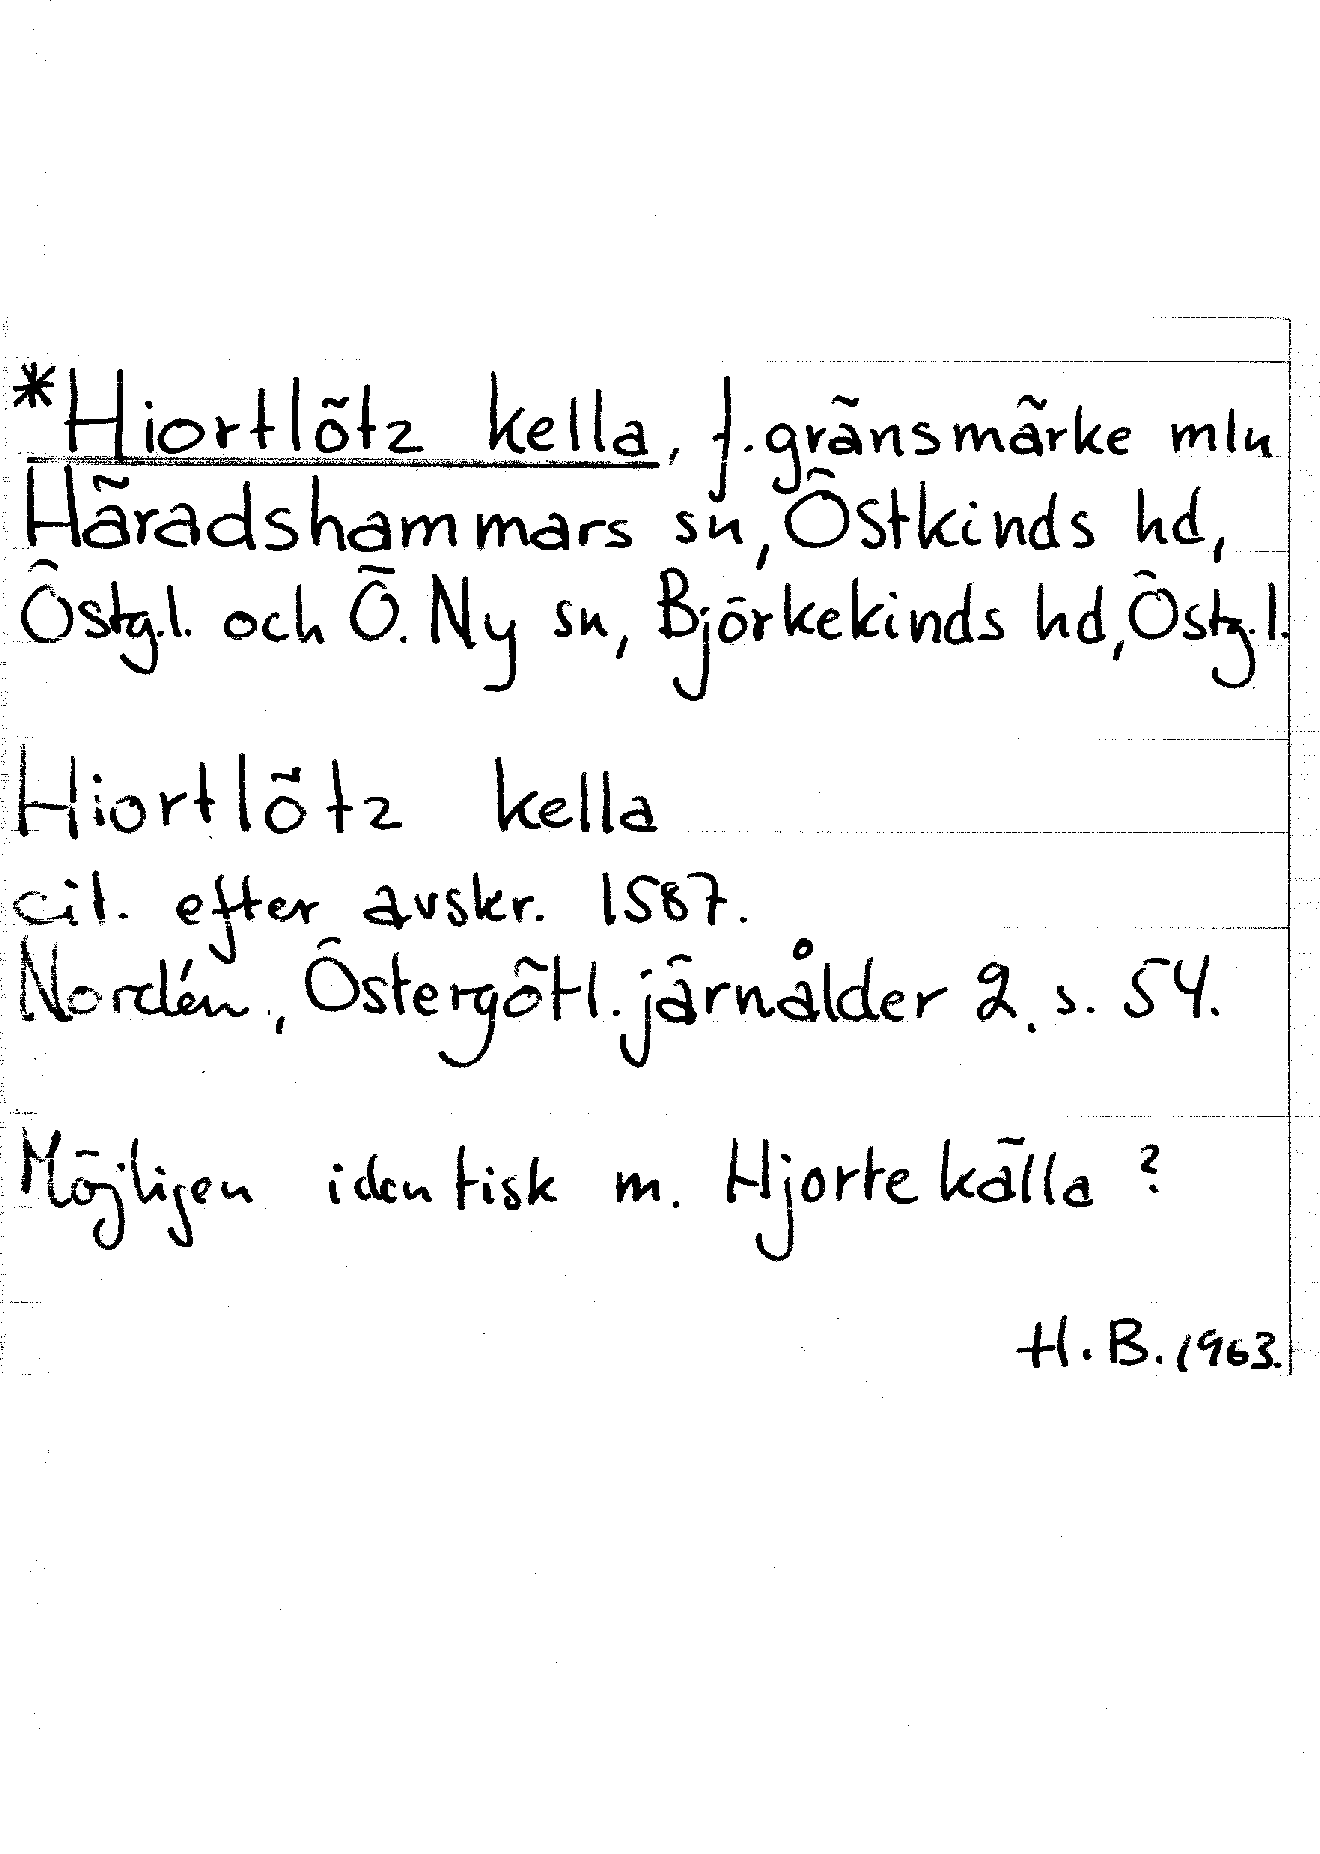 *Hiortlötz kella, f. gränsmärke mln
Häradshammars sn, Östkinds hd,
Östg.l. och Ö. Ny sn, Björkekinds hd, Östg.l.
Hiortlötz kella
cit. efter avskr. 1587.
Nordén, Östergötl. järnålder 2. s. 54.
Möjligen identisk m. Hjortekälla?
H.B. 1963.